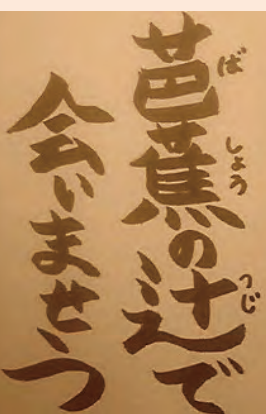 芭蕉の辻で
ばしょう つじ
会いませう